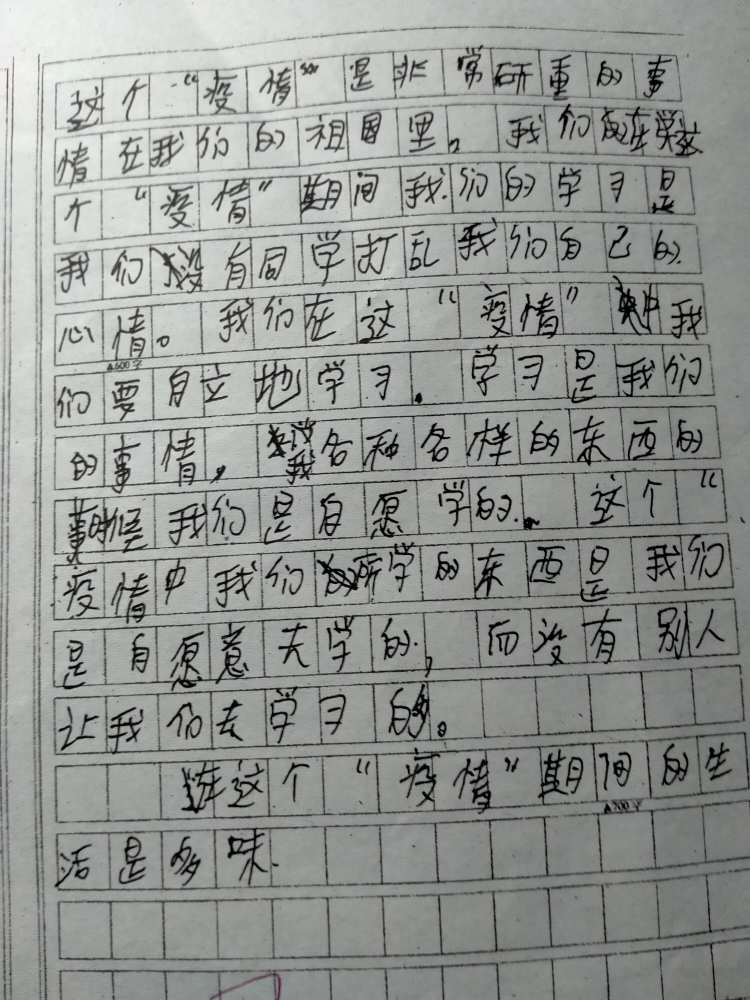 这个“疫情”是非常研重的事
情在我们的祖国里。我们在学这
个“疫情”期间我们的学习是
我们没有同学打乱我们自己的
心情。我们在这“疫情”中我
▲600字
们要自立地学习。学习是我们
的事情，我各种各样的东西的
时候我们是自愿学的。这个“
疫情中我们所学的东西是我们
是自愿意去学的，而没有别人
让我们去学习的。
在这个“疫情”期间的生
▲700字
活是多味.